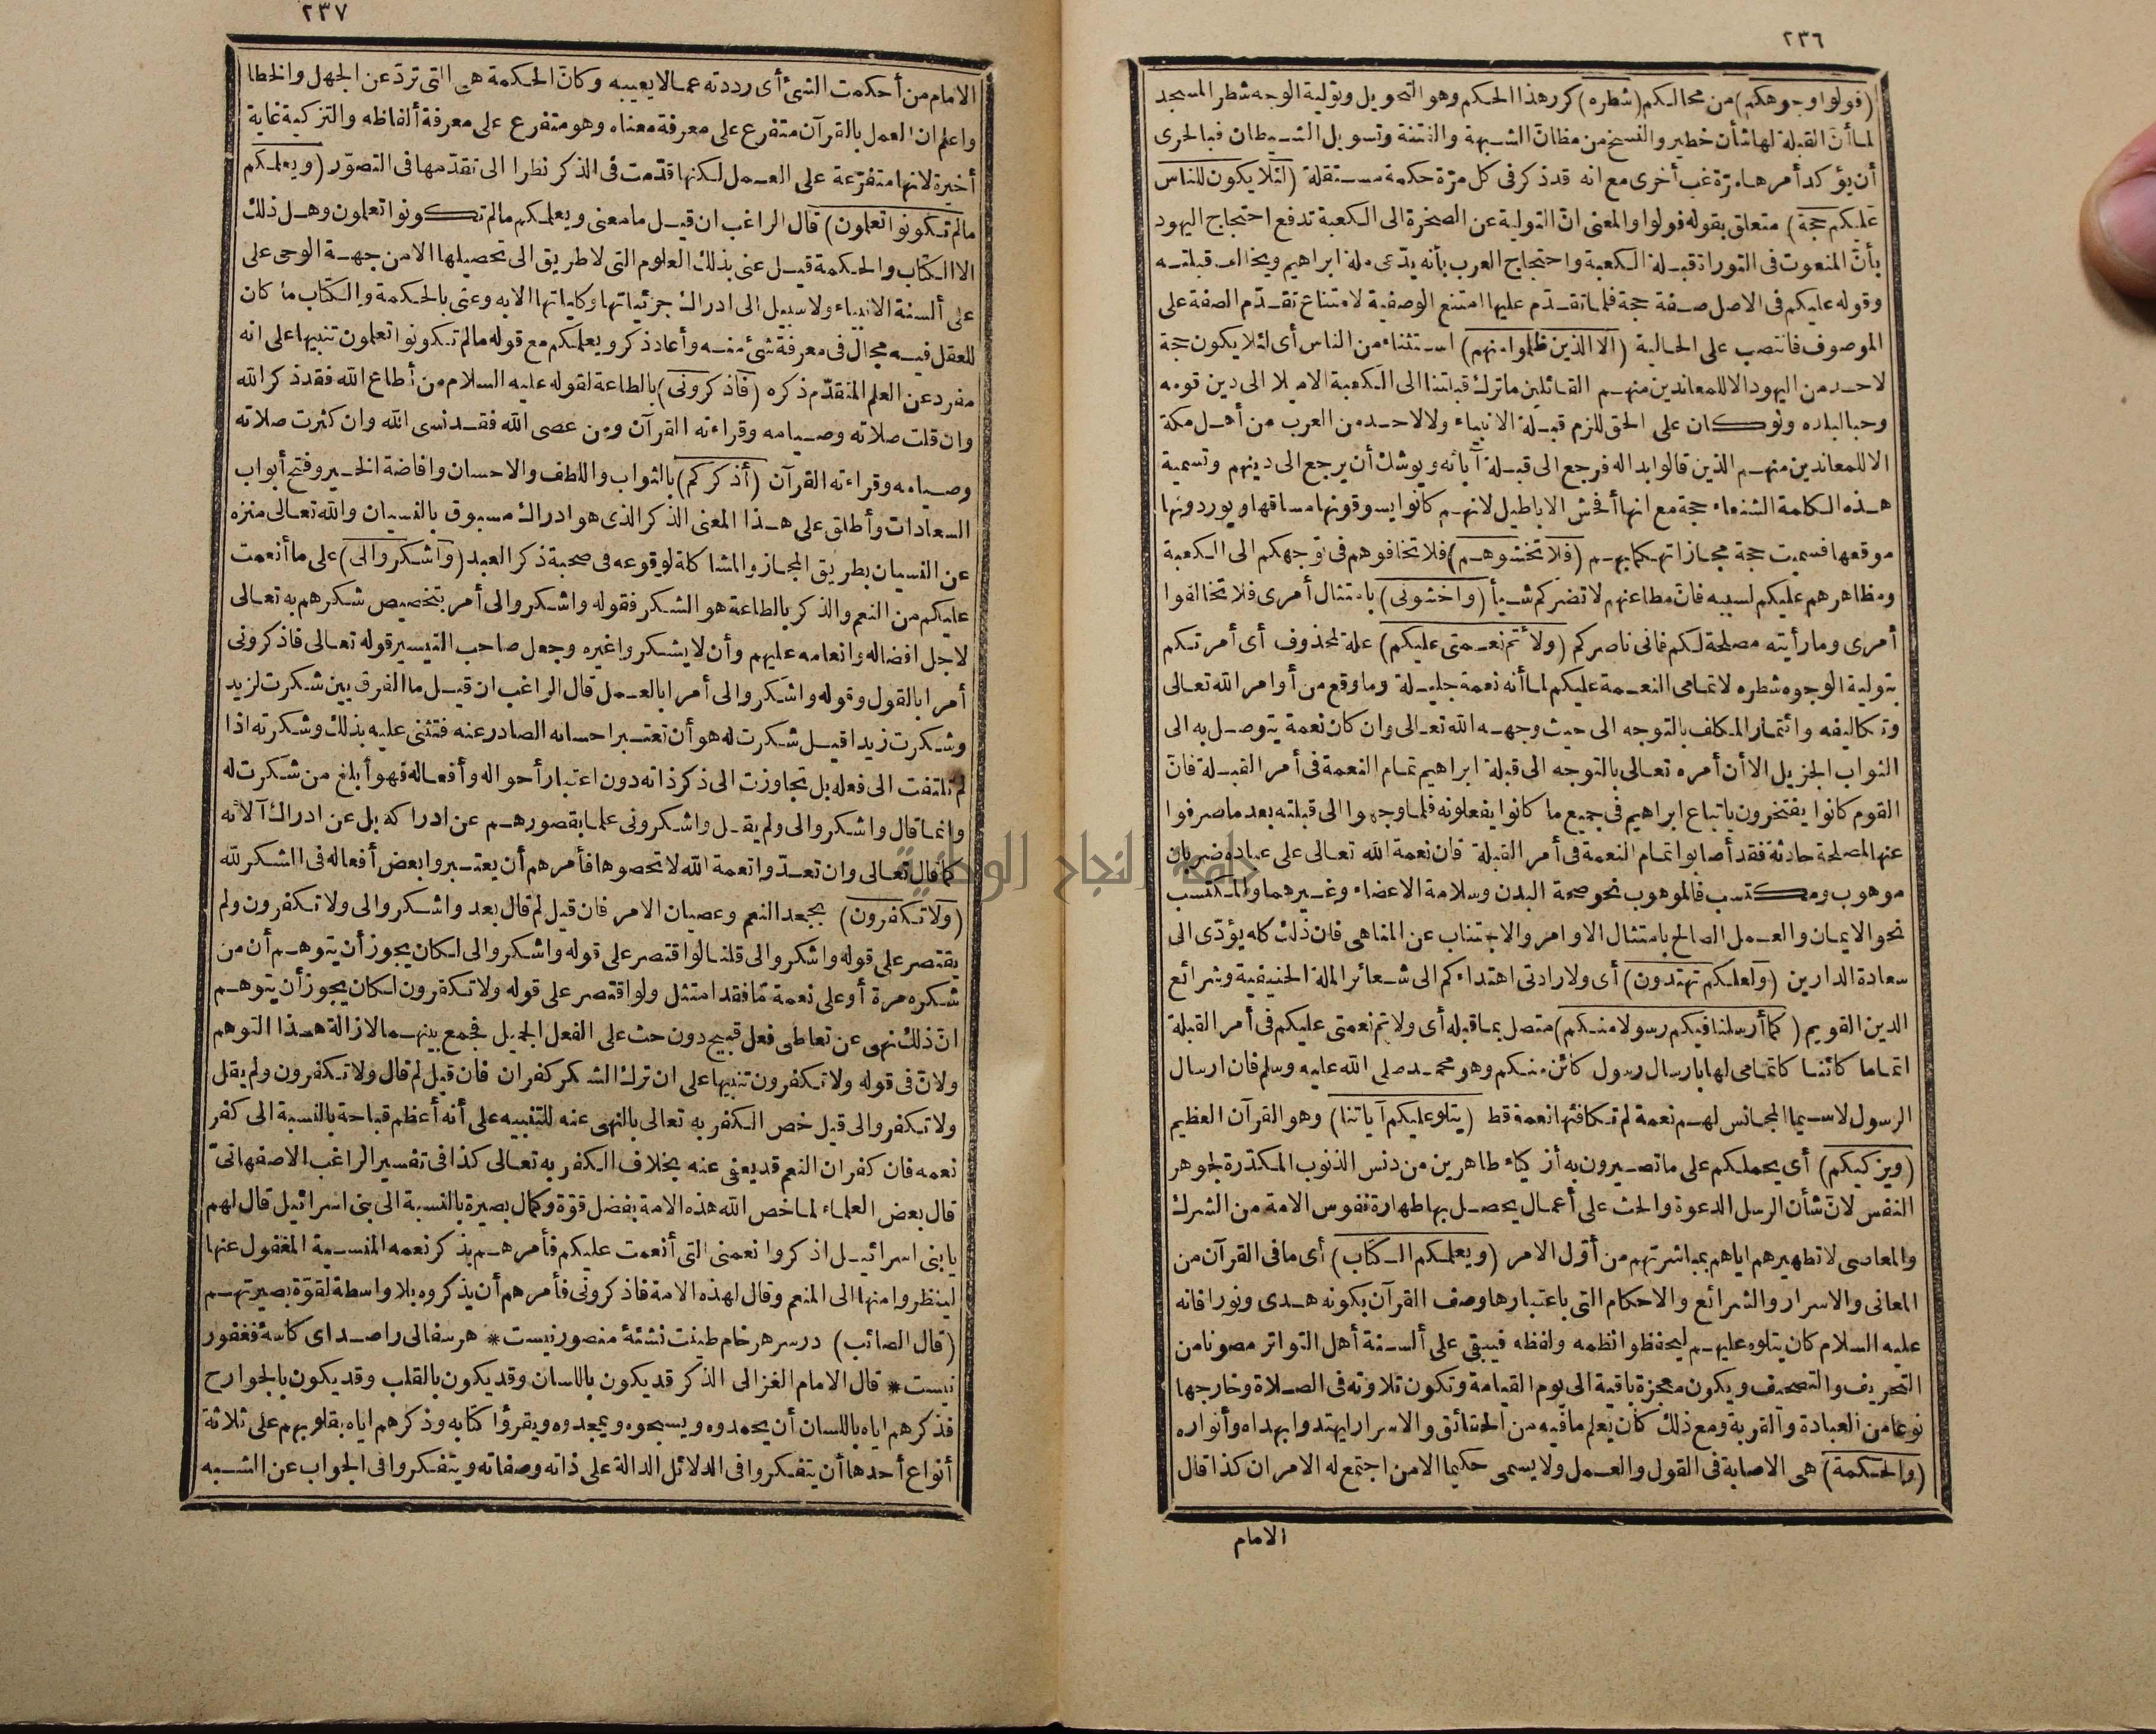 ٢٣٦
(فولوا وجوهكم) من محالكم (شطره) كرر هذا الحكم وهو التحويل وتولية الوجه شطر المسجد
لما أن القبلة لها شأن خطير والنسخ من مظان الشبهة والفتنة وتسويل الشيطان فبالحرى
أن يؤكد أمرها مرّة غب أخرى مع انه قد ذكر فى كل مرّة حكمة مستقلة (لئلا يكون للناس
عليكم حجة) متعلق بقوله فولوا والمعنى انّ التولية عن الصخرة الى الكعبة تدفع احتجاج اليهود
بأنّ المنعوت فى التوراة قبلة الكعبة واحتجاج العرب بأنه يدّعى ملة ابراهيم ويخالف قبلته
وقوله عليكم فى الاصل صفة حجة فلما تقدّم عليها امتنع الوصفية لامتناع تقدّم الصفة على
الموصوف فانتصب على الحالية (الا الذين ظلموا منهم) استثناء من الناس أى لئلا يكون حجة
لاحد من اليهود الا للمعاندين منهم القائلين ما ترك قبلتنا الى الكعبة الا ميلا الى دين قومه
وحبا لبلده ولو كان على الحق للزم قبلة الانبياء ولا لاحد من العرب من أهل مكة
الا للمعاندين منهم الذين قالوا بدا له فرجع الى قبلة آبائه ويوشك أن يرجع الى دينهم وتسمية
هذه الكلمة الشنعاء حجة مع انها أفحش الاباطيل لانهم كانوا يسوقونها مساقها ويوردونها
موقعها فسميت حجة مجازا تهكما بهم (فلا تخشوهم) فلا تخافوهم فى توجهكم الى الكعبة
ومظاهرهم عليكم لسببه فان مطاعنهم لا تضركم شيأ (واخشونى) بامتثال أمرى فلا تخالفوا
أمرى وما رأيته مصلحة لكم فانى ناصركم (ولأتم نعمتى عليكم) علة لمحذوف أى أمرتكم
بتولية الوجوه شطره لاتمامى النعمة عليكم لما أنه نعمة جليلة وما وقع من أوامر الله تعالى
وتكاليفه وائتمار المكلف بالتوجه الى حيث وجهه الله تعالى وان كان نعمة يتوصل به الى
الثواب الجزيل الا أن أمره تعالى بالتوجه الى قبلة ابراهيم تمام النعمة فى أمر القبلة فان
القوم كانوا يفتخرون باتباع ابراهيم فى جميع ما كانوا يفعلونه فلما وجهوا الى قبلته بعد ما صرفوا
عنها لمصلحة حادثة فقد أصابوا تمام النعمة فى أمر القبلة فان نعمة الله تعالى على عباده ضربان
موهوب ومكتسب فالموهوب نحو صحة البدن وسلامة الاعضاء وغيرهما والمكتسب
نحو الايمان والعمل الصالح بامتثال الاوامر والاجتناب عن المناهى فان ذلك كله يؤدّى الى
سعادة الدارين (ولعلكم تهتدون) أى ولارادتى اهتداءكم الى شعائر الملة الحنيفية وشرائع
الدين القويم (كما أرسلنا فيكم رسولا منكم) متصل بما قبله أى ولاتم نعمتى عليكم فى أمر القبلة
اتماما كائنا كاتمامى لها بارسال رسول كائن منكم وهو محمد صلى الله عليه وسلم فان ارسال
الرسول لا سيما المجانس لهم نعمة لم تكافئها نعمة قط (يتلو عليكم آياتنا) وهو القرآن العظيم
(ويزكيكم) أى يحملكم على ما تصيرون به أزكياء طاهرين من دنس الذنوب المكدّرة لجوهر
النفس لانّ شأن الرسل الدعوة والحث على أعمال يحصل بها طهارة نفوس الامة من الشرك
والمعاصى لا تطهيرهم اياهم بمباشرتهم من أوّل الامر (ويعلمكم الكتاب) أى ما فى القرآن من
المعانى والاسرار والشرائع والاحكام التى باعتبارها وصف القرآن بكونه هدى ونورا فانه
عليه السلام كان يتلوه عليهم ليحفظوا نظمه ولفظه فيبقى على ألسنة أهل التواتر مصونا من
التحريف والتصحيف ويكون معجزة باقية الى يوم القيامة وتكون تلاوته فى الصلاة وخارجها
نوعا من العبادة والقربة ومع ذلك كان يعلم ما فيه من الحقائق والاسرار ليهتدوا بهداه وأنواره
(والحكمة) هى الاصابة فى القول والعمل ولا يسمى حكيما الا من اجتمع له الامران كذا قال
الامام
٢٣٧
الامام من أحكمت الشئ أى رددته عما لا يعيبه وكان الحكمة هى التى تردّ عن الجهل والخطا
واعلم ان العمل بالقرآن متفرع على معرفة معناه وهو متفرع على معرفة ألفاظه والتزكية غاية
أخيرة لانها متفرّعة على العمل لكنها قدّمت فى الذكر نظرا الى تقدّمها فى التصوّر (ويعلمكم
ما لم تكونوا تعلمون) قال الراغب ان قيل ما معنى ويعلمكم ما لم تكونوا تعلمون وهل ذلك
الا الكتاب والحكمة قيل عنى بذلك العلوم التى لا طريق الى تحصيلها الا من جهة الوحى على
على ألسنة الانبياء ولا سبيل الى ادراك جزئياتها وكلياتها الا به وعنى بالحكمة والكتاب ما كان
للعقل فيه مجال فى معرفة شئ منه وأعاد ذكر ويعلمكم مع قوله ما لم تكونوا تعلمون تنبيها على انه
مفرد عن العلم المتقدّم ذكره (فاذكرونى) بالطاعة لقوله عليه السلام من أطاع الله فقد ذكر الله
وان قلت صلاته وصيامه وقراءته القرآن ومن عصى الله فقد نسى الله وان كثرت صلاته
وصيامه وقراءته القرآن (أذكركم) بالثواب واللطف والاحسان وافاضة الخير وفتح أبواب
السعادات وأطلق على هذا المعنى الذكر الذى هو ادراك مسبوق بالنسيان والله تعالى منزه
عن النسيان بطريق المجاز والمشاكلة لوقوعه فى صحبة ذكر العبد (واشكروا لى) على ما أنعمت
عليكم من النعم والذكر بالطاعة هو الشكر فقوله واشكروا لى أمر بتخصيص شكرهم به تعالى
لاجل افضاله وانعامه عليهم وأن لا يشكروا غيره وجعل صاحب التيسير قوله تعالى فاذكرونى
أمرا بالقول وقوله واشكروا لى أمرا بالعمل قال الراغب ان قيل ما الفرق بين شكرت لزيد
وشكرت زيدا قيل شكرت له هو أن تعتبر احسانه الصادر عنه فتثنى عليه بذلك وشكرته اذا
لم تلتفت الى فعله بل تجاوزت الى ذكر ذاته دون اعتبار أحواله وأفعاله فهو أبلغ من شكرت له
وانما قال واشكروا لى ولم يقل واشكرونى علما بقصورهم عن ادراكه بل عن ادراك آلائه
كما قال تعالى وان تعدّوا نعمة الله لا تحصوها فأمرهم أن يعتبروا بعض أفعاله فى الشكر لله
(ولا تكفرون) بجحد النعم وعصيان الامر فان قيل لم قال بعد واشكروا لى ولا تكفرون ولم
يقتصر على قوله واشكروا لى قلنا لو اقتصر على قوله واشكروا لى لكان يجوز أن يتوهم أن من
شكره مرة أو على نعمة مّا فقد امتثل ولو اقتصر على قوله ولا تكفرون لكان يجوز أن يتوهم
انّ ذلك نهى عن تعاطى فعل قبيح دون حث على الفعل الجميل فجمع بينهما لازالة هذا التوهم
ولانّ فى قوله ولا تكفرون تنبيها على ان ترك الشكر كفران فان قيل لم قال ولا تكفرون ولم يقل
ولا تكفروا لى قيل خص الكفر به تعالى بالنهى عنه للتنبيه على أنه أعظم قباحة بالنسبة الى كفر
نعمه فان كفران النعم قد يعفى عنه بخلاف الكفر به تعالى كذا فى تفسير الراغب الاصفهانىّ
قال بعض العلماء لما خص الله هذه الامة بفضل قوّة وكمال بصيرة بالنسبة الى بنى اسرائيل قال لهم
يا بنى اسرائيل اذكروا نعمتى التى أنعمت عليكم فأمرهم بذكر نعمه المنسية المغفول عنها
لينظروا منها الى المنعم وقال لهذه الامة فاذكرونى فأمرهم أن يذكروه بلا واسطة لقوّة بصيرتهم
(قال الصائب) درسر هر خام طينت نشئهٔ منصور نيست * هر سفالى را صداى كاسهٔ فغفور
نيست * قال الامام الغزالى الذكر قد يكون باللسان وقد يكون بالقلب وقد يكون بالجوارح
فذكرهم اياه باللسان أن يحمدوه ويسبحوه ويمجدوه ويقرؤا كتابه وذكرهم اياه بقلوبهم على ثلاثة
أنواع أحدها أن يتفكروا فى الدلائل الدالة على ذاته وصفاته ويتفكروا فى الجواب عن الشبه